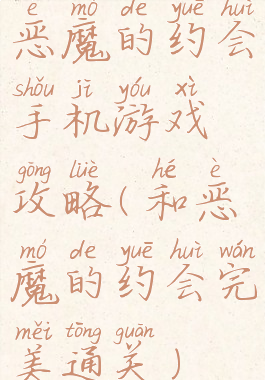 è mó de yuē huì
恶魔的约会
shǒu jī yóu xì
手机游戏
gōng lüè hé è
攻略(和恶
mó de yuē huì wán
魔的约会完
měi tōng guān
美通关)